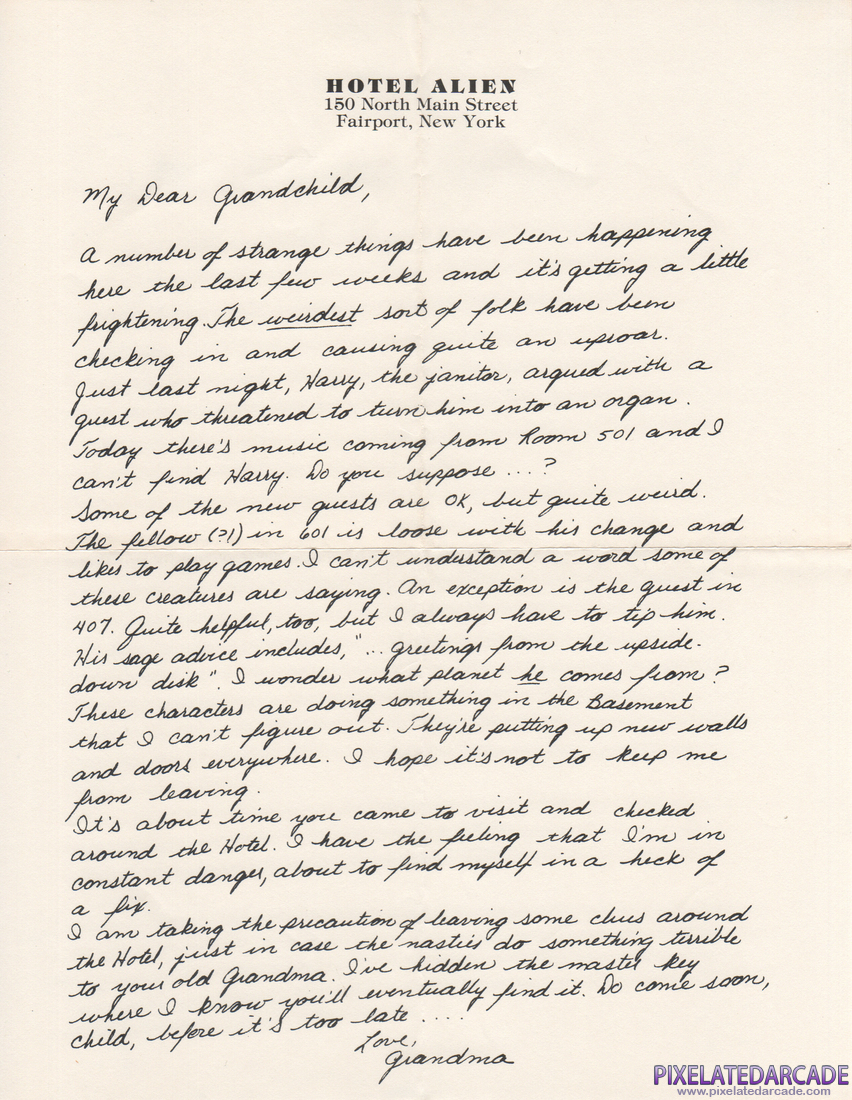 HOTEL ALIEN
150 North Main Street
Fairport, New York
My Dear Grandchild,
A number of strange things have been happening
here the last few weeks and it's getting a little
frightening. The weirdest sort of folk have been
checking in and causing quite an uproar.
Just last night, Harry, the janitor, argued with a
guest who threatened to turn him into an organ.
Today there's music coming from Room 501 and I
can't find Harry. Do you suppose ...?
Some of the new guests are OK, but quite weird.
The fellow (?!) in 601 is loose with his change and
likes to play games. I can't understand a word some of
these creatures are saying. An exception is the guest in
407. Quite helpful, too, but I always have to tip him.
His sage advice includes, "... greetings from the upside-
down disk". I wonder what planet he comes from?
These characters are doing something in the Basement
that I can't figure out. They're putting up new walls
and doors everywhere. I hope it's not to keep me
from leaving.
It's about time you came to visit and checked
around the Hotel. I have the feeling that I'm in
constant danger, about to find myself in a heck of
a fix.
I am taking the precaution of leaving some clues around
the Hotel, just in case the nasties do something terrible
to your old Grandma. I've hidden the master key
where I know you'll eventually find it. Do come soon,
child, before it's too late ....
Love,
Grandma
PIXELATEDARCADE
www.pixelatedarcade.com